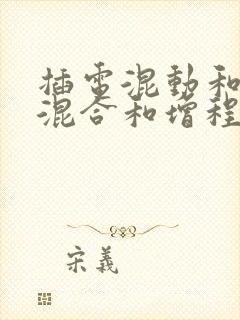 插電混動和
混合和增程
宋義